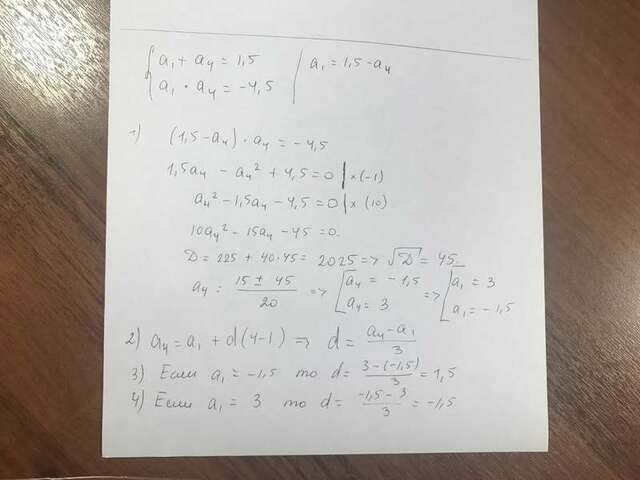 { a₁ + a₄ = 1,5 | a₁ = 1,5 - a₄
a₁ · a₄ = -4,5
1) (1,5 - a₄) · a₄ = -4,5
1,5a₄ - a₄² + 4,5 = 0 | × (-1)
a₄² - 1,5a₄ - 4,5 = 0 | × (10)
10a₄² - 15a₄ - 45 = 0.
D = 225 + 40·45 = 2025 => √D = 45
a₄ = (15 ± 45)/20 => [ a₄ = -1,5 ; a₄ = 3 => [ a₁ = 3 ; a₁ = -1,5
2) a₄ = a₁ + d(4-1) => d = (a₄ - a₁)/3
3) Если a₁ = -1,5 то d = (3-(-1,5))/3 = 1,5
4) Если a₁ = 3 то d = (-1,5 - 3)/3 = -1,5